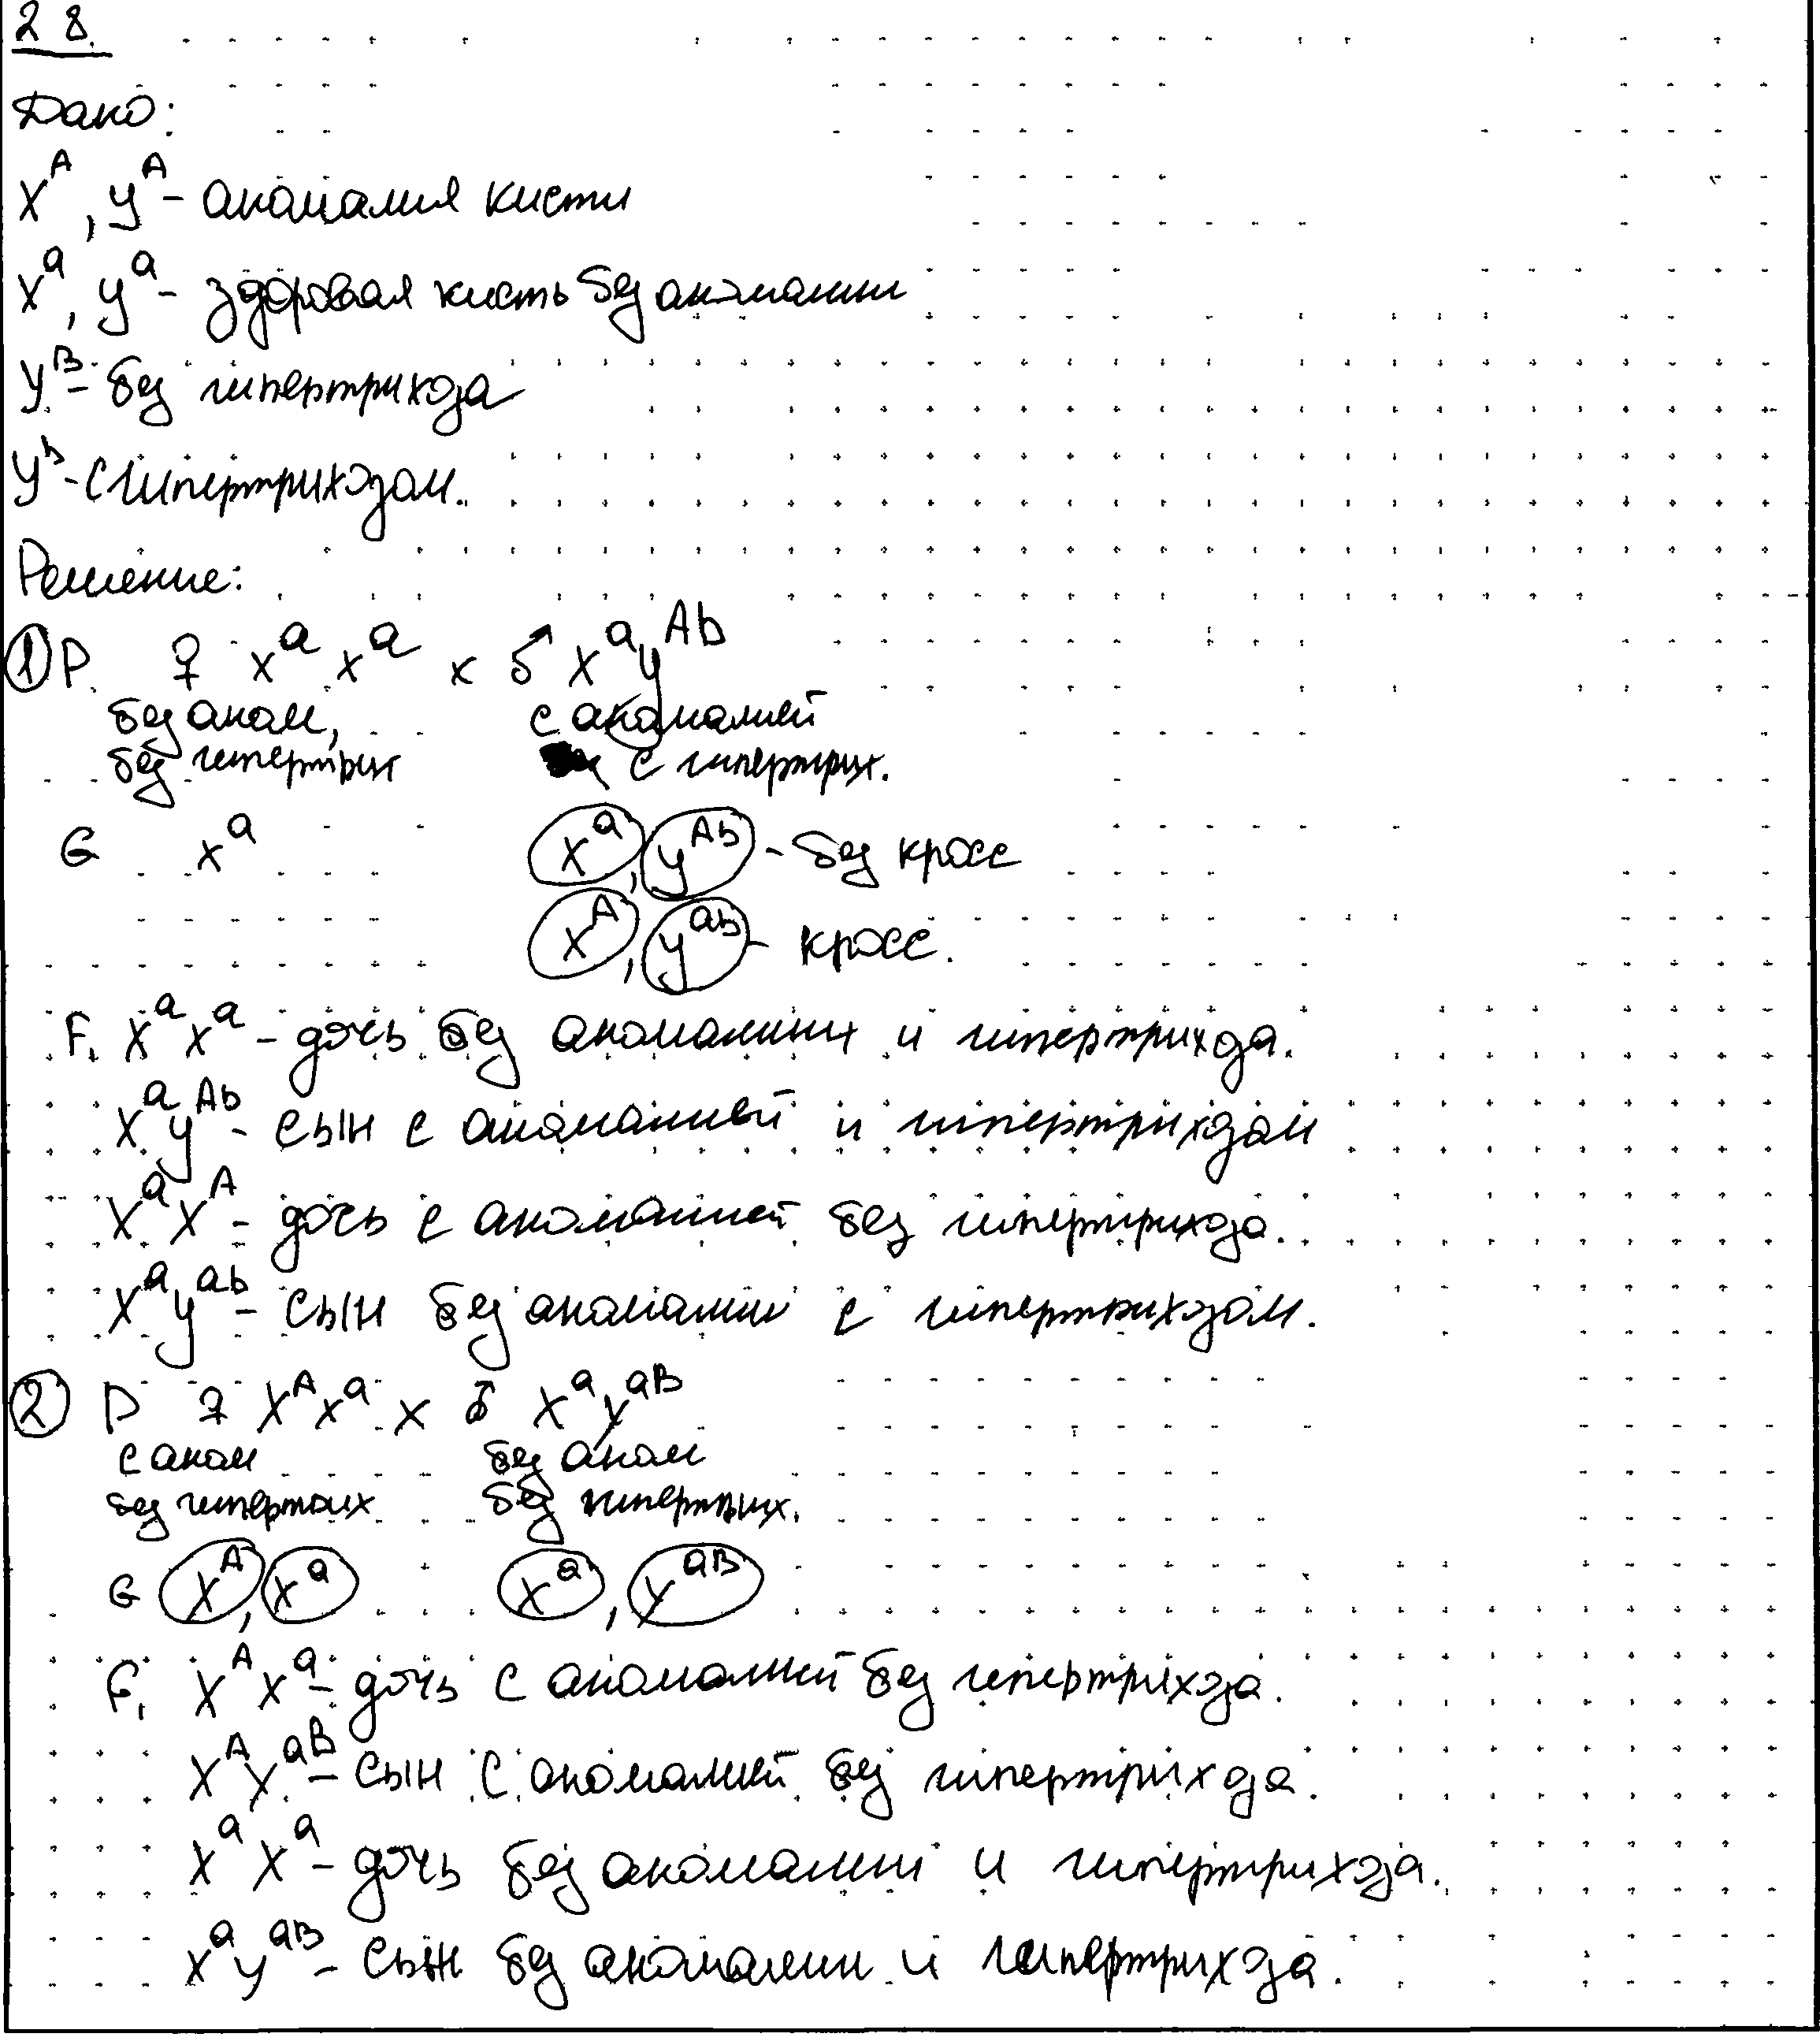 28.
Дано:
X^A, Y^A - аномалия кисти
X^a, Y^a - здоровая кисть без аномалии
Y^B - без гипертрихоза
Y^b - с гипертрихозом.
Решение:
① P ♀ X^a X^a x ♂ X^a Y^Ab
без аном, с аномалией
без гипертрих с гипертрих.
G X^a X^a, Y^Ab - без кросс
X^A, Y^ab - кросс.
F1 X^a X^a - дочь без аномалиих и гипертрихоза.
X^a Y^Ab - сын с аномалией и гипертрихозом
X^a X^A - дочь с аномалией без гипертрихоза.
X^a Y^ab - сын без аномалии с гипертрихозом.
② P ♀ X^A X^a x ♂ X^a Y^aB
с аном без аном
без гипертрих без гипертрих.
G X^A, X^a X^a, Y^aB
F1 X^A X^a - дочь с аномалией без гипертрихоза.
X^A Y^aB - сын с аномалией без гипертрихоза.
X^a X^a - дочь без аномалии и гипертрихоза.
X^a Y^aB - сын без аномалии и гипертрихоза.